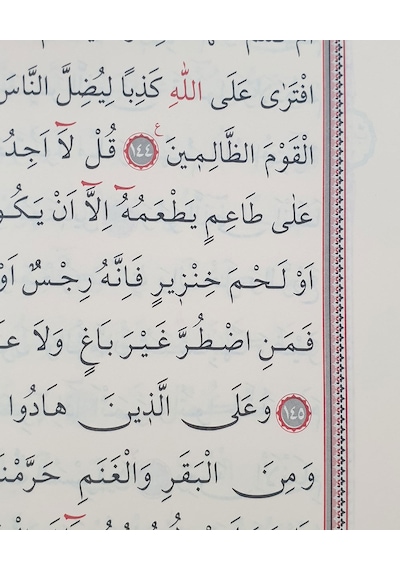 افْتَرٰى عَلَى اللّٰهِ كَذِبًا لِيُضِلَّ النَّاسَ
الْقَوْمَ الظَّالِمٖينَ ع ١٤٤ قُلْ لَٓا اَجِدُ
عَلٰى طَاعِمٍ يَطْعَمُهُٓ اِلَّٓا اَنْ يَكُو
اَوْ لَحْمَ خِنْزٖيرٍ فَاِنَّهُ رِجْسٌ اَوْ
فَمَنِ اضْطُرَّ غَيْرَ بَاغٍ وَلَا عَا
١٤٥ وَعَلَى الَّذٖينَ هَادُوا
وَمِنَ الْبَقَرِ وَالْغَنَمِ حَرَّمْنَا